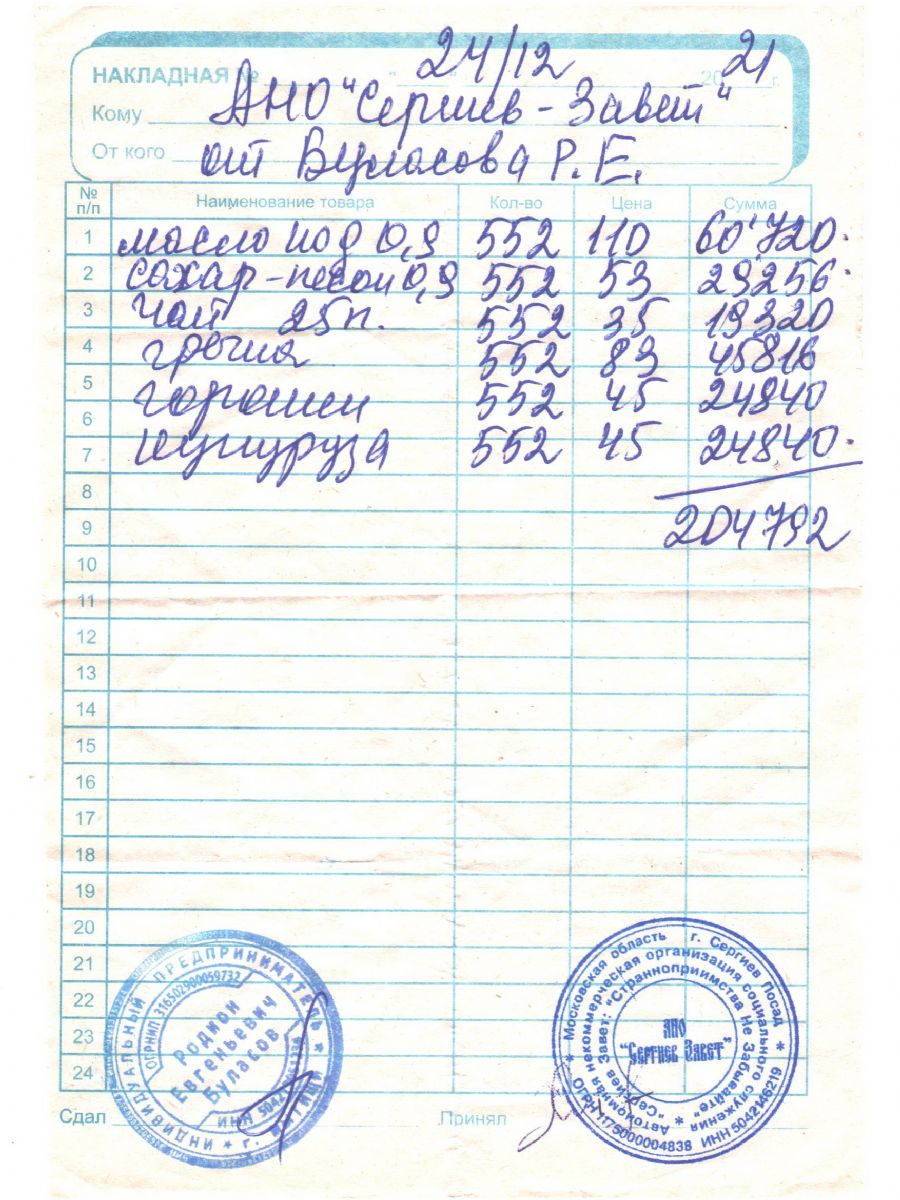 НАКЛАДНАЯ № " 24/12 " 20 21 г.
Кому АНО "Сергиев-Завет"
От кого от Буласова Р.Е.
№ п/п Наименование товара Кол-во Цена Сумма
1 масло под 0,9 552 110 60'720.
2 сахар-песок 0,9 552 53 29256.
3 чай 25п. 552 35 19320
4 гречка 552 83 45816
5 горошек 552 45 24840
6
7 кукуруза 552 45 24840.
8
9 204792
10
11
12
13
14
15
16
17
18
19
20
21
22
23
24
Сдал Принял
* ИНДИВИДУАЛЬНЫЙ ПРЕДПРИНИМАТЕЛЬ *
ОГРНИП 316502900059732
Родион
Евгеньевич
Буласов
ИНН
* Московская область г. Сергиев Посад *
ОГРН 1175000004838 ИНН 5042146219
Автономная некоммерческая организация социального служения
"Сергиев Завет: "Странноприимства Не Забывайте" *
АНО
"Сергиев Завет"